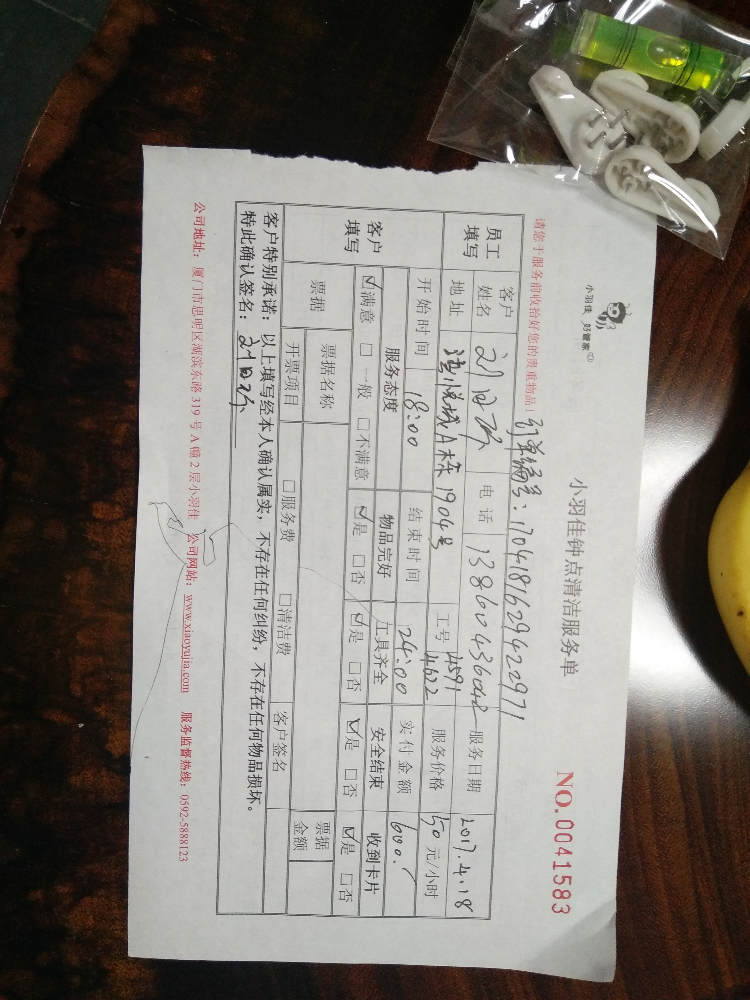 小羽佳 好管家
小羽佳钟点清洁服务单
NO.0041583
请您于服务前收拾好您的贵重物品!
订单编号:17041816294220971
员工填写 客户姓名 电话 服务日期 2017.4.18
地址 A栋1904号 工号 4591 4622 服务价格 50 元/小时
客户填写 开始时间 18:00 结束时间 24:00 实付金额 600.
服务态度 物品完好 工具齐全 安全结束 收到卡片
☑满意 □一般 □不满意 ☑是 □否 ☑是 □否 ☑是 □否 ☑是 □否
票据 票据名称 票据金额
开票项目 □服务费 □清洁费 客户签名
客户特别承诺:以上填写经本人确认属实,不存在任何纠纷,不存在任何物品损坏。
特此确认签名:
公司地址:厦门市思明区湖滨东路319号A幢2层小羽佳 公司网站:www.xiaoyujia.com 服务监督热线:0592-5888123